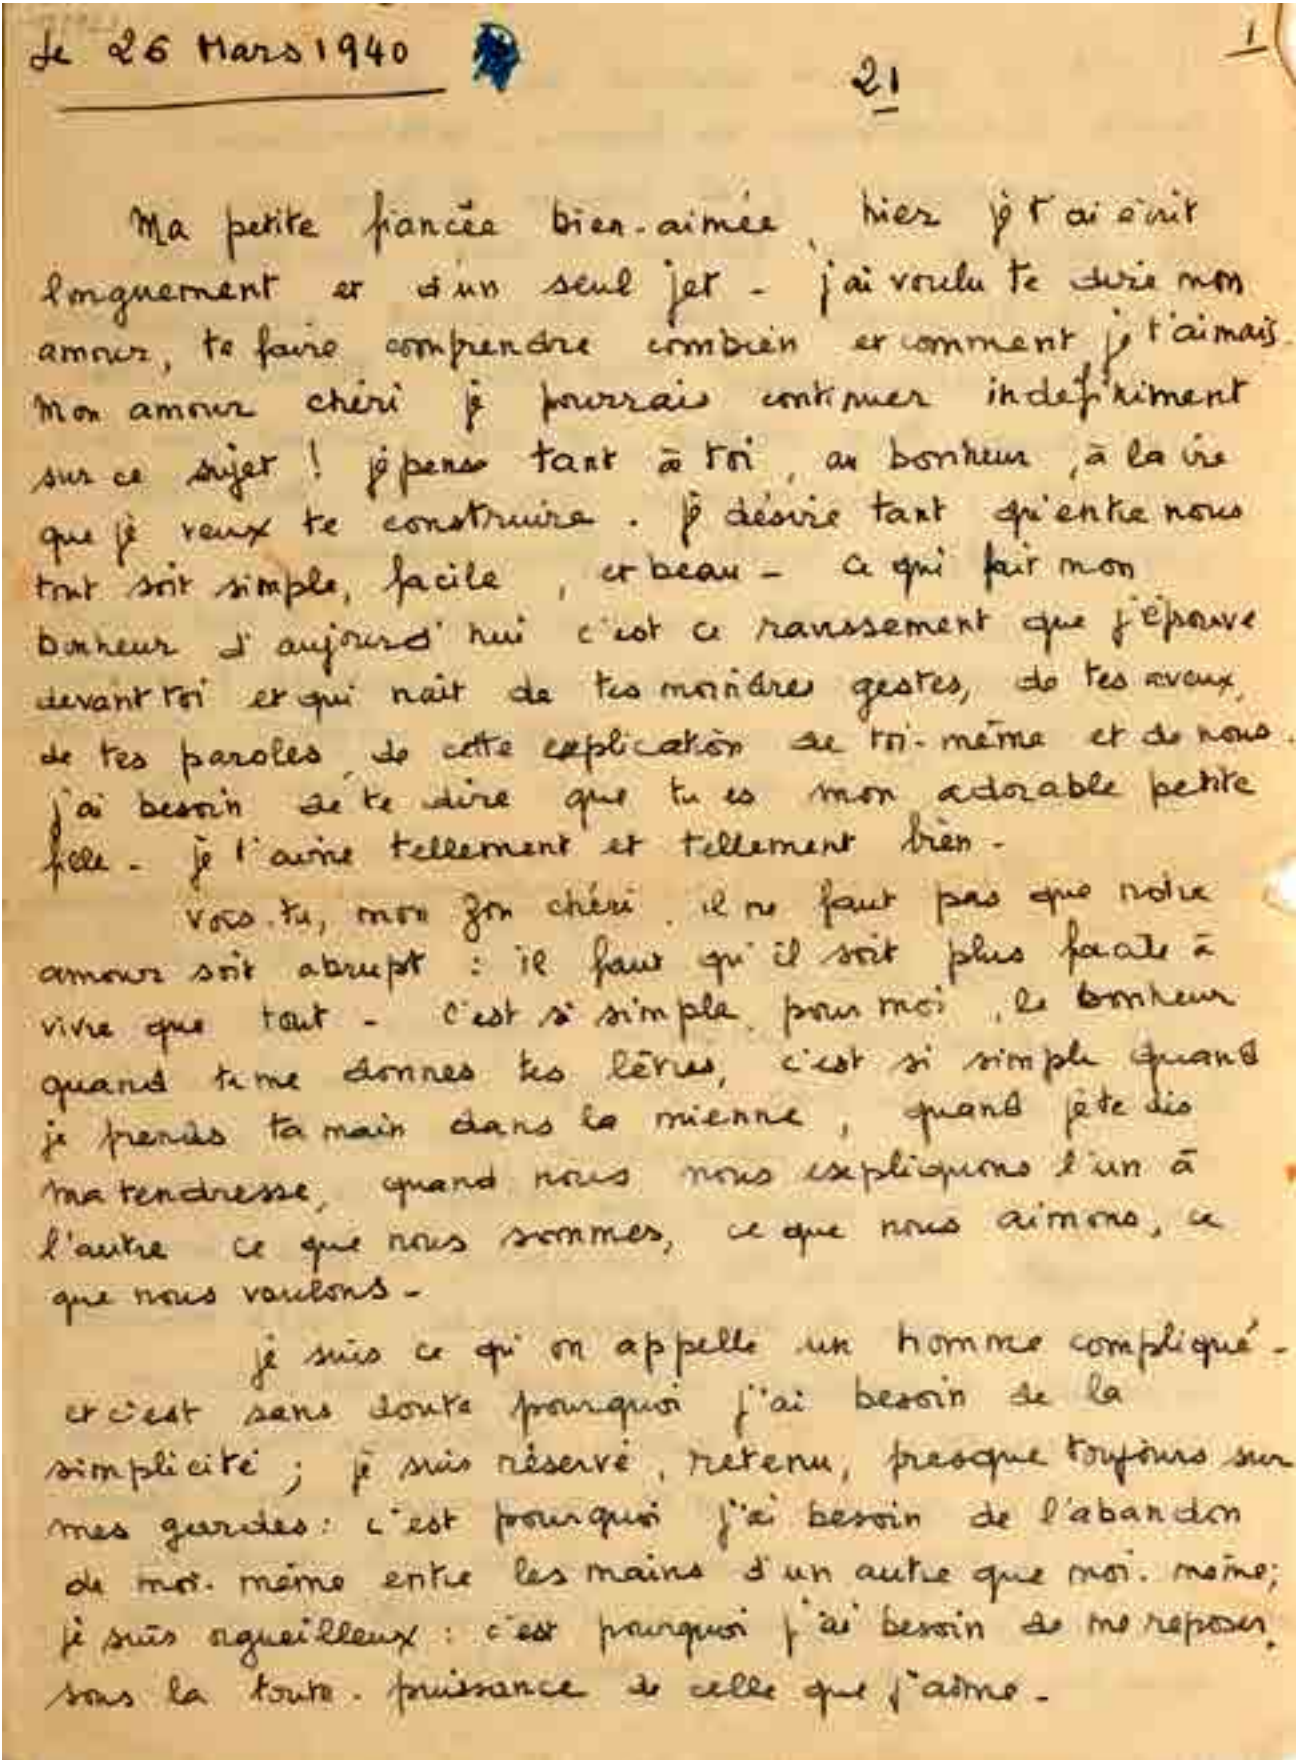 Le 26 Mars 1940
1
21
Ma petite fiancée bien-aimée, hier je t'ai écrit
longuement et d'un seul jet - j'ai voulu te dire mon
amour, te faire comprendre combien et comment je t'aimais.
Mon amour chéri je pourrais continuer indéfiniment
sur ce sujet ! je pense tant à toi, au bonheur, à la vie
que je veux te construire. je désire tant qu'entre nous
tout soit simple, facile, et beau - ce qui fait mon
bonheur d'aujourd'hui c'est ce ravissement que j'éprouve
devant toi et qui naît de tes moindres gestes, de tes aveux,
de tes paroles, de cette explication de toi-même et de nous.
j'ai besoin de te dire que tu es mon adorable petite
fille - je t'aime tellement et tellement bien -
vois-tu, mon Zou chéri, il ne faut pas que notre
amour soit abrupt : il faut qu'il soit plus facile à
vivre que tout - c'est si simple, pour moi, le bonheur
quand tu me donnes tes lèvres, c'est si simple quand
je prends ta main dans la mienne, quand je te dis
ma tendresse, quand nous nous expliquons l'un à
l'autre ce que nous sommes, ce que nous aimons, ce
que nous voulons -
je suis ce qu'on appelle un homme compliqué -
et c'est sans doute pourquoi j'ai besoin de la
simplicité ; je suis réservé, retenu, presque toujours sur
mes gardes : c'est pourquoi j'ai besoin de l'abandon
de moi-même entre les mains d'un autre que moi-même ;
je suis orgueilleux : c'est pourquoi j'ai besoin de me reposer
sous la toute-puissance de celle que j'aime -